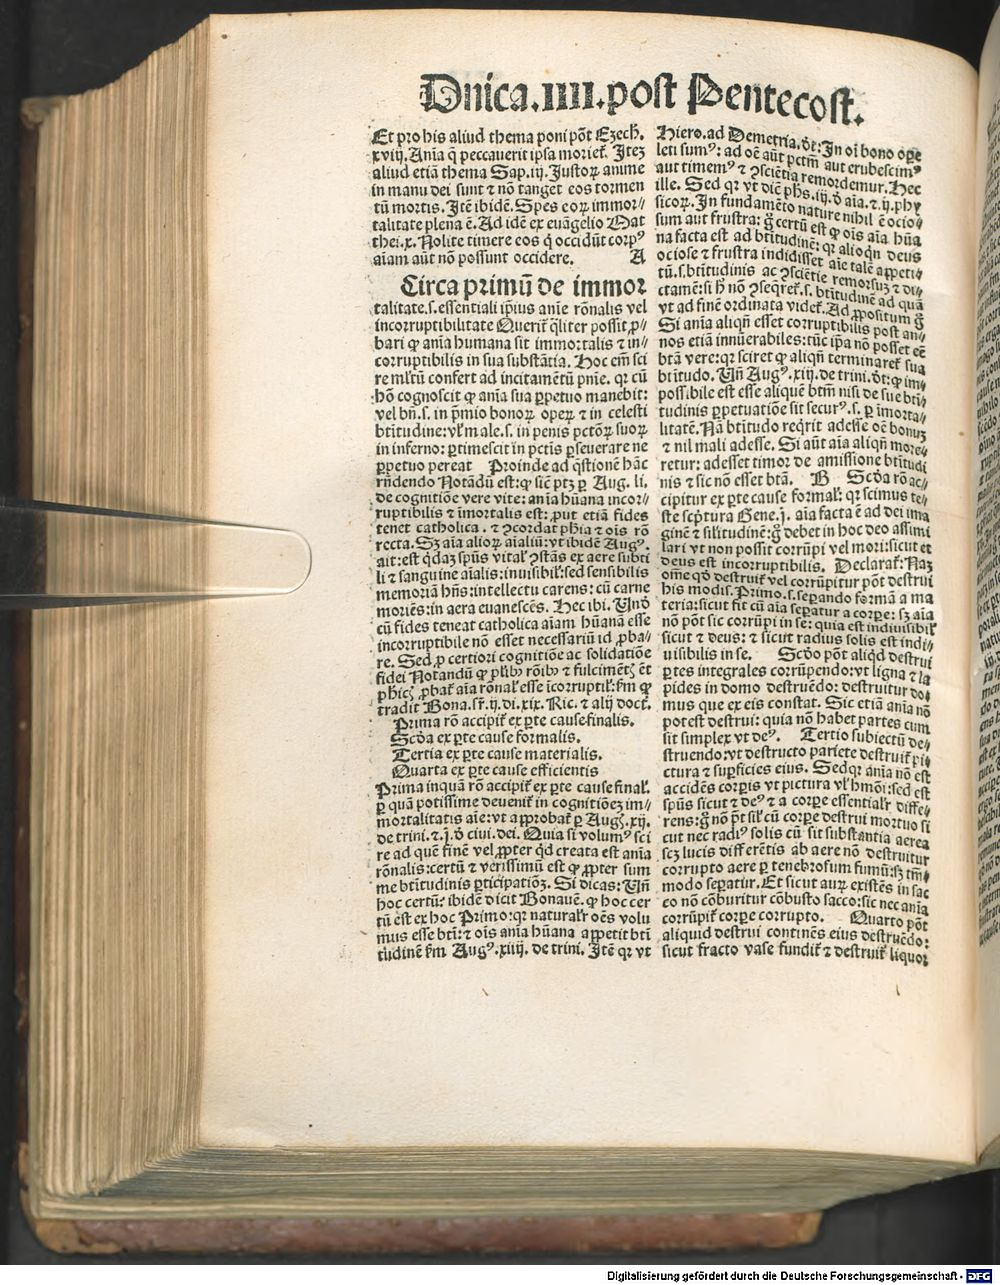 Dnica.IIII.post Pentecost.
Et pro his aliud thema poni põt Ezech̃.
xviij. Aĩa q̃ peccauerit ipsa morieť. Iteʒ
aliud etiã thema Sap.iij. Iustoꝝ anime
in manu dei sunt ⁊ nõ tanget eos tormen
tũ mortis. Itẽ ibidẽ. Spes eoꝝ immor⸗
talitate plena ẽ. Ad idẽ ex euãgelio Mat
thei.x. Nolite timere eos q̃ occidũt corpꝰ
aĩam aũt nõ possunt occidere. A
Circa primũ de immor
talitate.s.essentiali ipsius anĩe rõnalis vel
incorruptibilitate Queriť q̃liter possit ꝓ⸗
bari ꝙ anĩa humana sit immortalis ⁊ in⸗
corruptibilis in sua substãtia. Hoc em̃ sci
re ml̃tũ confert ad incitamẽtũ pnĩe. qꝛ cũ
hõ cognoscit ꝙ anĩa sua ꝑpetuo manebit:
vel bñ.s. in p̃mio bonoꝝ operꝝ ⁊ in celesti
btĩtudine: vl̃ male.s. in penis pctõꝝ suoꝝ
in inferno: ꝑtimescit in pctĩs ꝑseuerare ne
ꝑpetuo pereat Proinde ad q̃stionẽ hãc
rñdendo Notãdũ est: ꝙ sicẽ ptꝫ ꝑ Aug. li.
de cognitiõe vere vite: anĩa hũana incor⸗
ruptibilis ⁊ ĩmortalis est: ꝓut etiã fides
tenet catholica. ⁊ ↄcordat ph̃ia ⁊ oĩs rõ
recta. Sꝫ aĩa alioꝝ aĩaliũ: vt ibidẽ Augꝰ.
ait: est q̃daʒ spũs vital̃ ↄstãs ex aere subti
li ⁊ sanguine aĩalis: inuisibil̃: sed sensibilis
memoriã hñs: intellectu carens: cũ carne
moriẽs: in aera euanescẽs. Hec ibi. Uñ̃
cũ fides teneat catholica aĩam hũanã esse
incorruptibile nõ esset necessariũ id ꝓba⸗
re. Sed ꝓ certiori cognitiõe ac solidatiõe
fidei Notandũ ꝙ pl'ibꝰ rõibꝰ ⁊ fulcimẽtꝭ ẽt
ph̃icꝭ ꝓbať aĩa rõnal̃ esse ĩcorruptil̃: fm̃ ꝙ
tradit Bona. sr̃.ij.di.xix. Ric. ⁊ alij doct̃.
Prima rõ accipiť ex ꝑte cause finalis.
Scd̃a ex ꝑte cause formalis.
Tertia ex ꝑte cause materialis.
Quarta ex ꝑte cause efficientis
Prima inquã rõ accipiť ex ꝑte cause final̃.
ꝑ quã potissime deueniť in cognitiõeʒ im⸗
mortalitatis aĩe: vt aꝓbať ꝑ Augꝭ. xij.
de trini. ⁊.j. ð ciui. dei. Quia si volumꝰ sci
re ad quẽ finẽ vel ꝓpter qd̃ creata est anĩa
rõnalis: certũ ⁊ verissimũ est ꝙ ꝓpter sum
me btĩtudinis ꝑticipatiõꝫ. Si dicas: Uñ
hoc certũ: ibidẽ dicit Bonauẽ. ꝙ hoc cer
tũ est ex hoc Primo: qꝛ natural̃r oẽs volu
mus esse btĩ: ⁊ oĩs anĩa hũana appetit btĩ
tudinẽ fm̃ Augꝰ. xiiij. de trini. Itẽ qꝛ vt
Hiero. ad Demetria. ð̃t: In oĩ bono oꝑe
leti sumꝰ: ad oẽ aũt pctm̃ aut erubescimꝰ
aut timemꝰ ⁊ ↄsciẽtia remordemur. Hec
ille. Sed qꝛ vt diẽ ph̃s.iij.ð aĩa.⁊.ij.phy
sicoꝝ. In fundamẽto nature nihil ẽ ocio⸗
sum aut frustra: g̃ certũ est ꝙ oĩs aĩa hũa
na facta est ad btĩtudinẽ: qꝛ alioqñ deus
ociose ⁊ frustra indidisset aĩe talẽ appeti⸗
tũ.s. btĩtudinis ac ↄsciẽtie remorsuʒ ⁊ di⸗
ctamẽ: si h̃ nõ ↄseq̃reť.s. btĩtudinẽ ad quã
vt ad finẽ ordinata videť. Ad ꝓpositum g̃
Si anĩa aliqñ esset corruptibilis post an⸗
nos etiã innũerabiles: tũc ip̃a nõ posset eẽ
btã vere: qꝛ sciret ꝙ aliqñ terminareť sua
btĩtudo. Uñ Augꝰ. xiij. de trini. ð̃t: ꝙ im⸗
possibile est esse aliquẽ btm̃ nisi de sue btĩ⸗
tudinis ꝑpetuatiõe sit securꝰ.s. ꝑ ĩmorta⸗
litatẽ. Nã btĩtudo reqrit adesse oẽ bonuʒ
⁊ nil mali adesse. Si aũt aĩa aliqñ more⸗
retur: adesset timor de amissione btĩtudi
nis ⁊ sic nõ esset btã. B Scd̃a rõ ac⸗
cipitur ex ꝑte cause formal̃: qꝛ scimus te⸗
ste scp̃tura Gene.j. aĩa facta ẽ ad dei ima
ginẽ ⁊ sil̃itudinẽ: g̃ debet in hoc deo assimi
lari vt non possit corrũpi vel mori: sicut et
deus est incorruptibilis. Declarať: Naʒ
om̃e qð destruiť vel corrũpitur põt destrui
his modis. Primo.s. seꝑando formã a ma
teria: sicut fit cũ aĩa seꝑatur a corꝑe: sꝫ aĩa
nõ põt sic corrũpi in se: quia est indiuisibil̃
sicut ⁊ deus: ⁊ sicut radius solis est indi⸗
uisibilis in se. Scd̃o põt aliqd̃ destrui
ꝑtes integrales corrũpendo: vt ligna ⁊ la
pides in domo destruẽdo: destruitur do⸗
mus que ex eis constat. Sic etiã anĩa nõ
potest destrui: quia nõ habet partes cum
sit simplex vt deꝰ. Tertio subiectũ de⸗
struendo: vt destructo pariete destruiť pi⸗
ctura ⁊ suꝑficies eius. Sed qꝛ anĩa nõ est
accidẽs corꝑis vt pictura vl̃ hmõi: sed est
spũs sicut ⁊ deꝰ ⁊ a corpe essential̃r diffe⸗
rens: g̃ nõ p̃t sil̃ cũ corꝑe destrui mortuo si
cut nec radiꝰ solis cũ sit substantia aerea
scꝫ lucis differẽtis ab aere nõ destruitur
corrupto aere ꝑ tenebrosum fumũ: sꝫ tm̃⸗
modo seꝑatur. Et sicut auꝝ existẽs in sac
co nõ cõburitur cõbusto sacco: sic nec anĩa
corrũpiť corꝑe corrupto. Quarto põt
aliquid destrui continẽs eius destruẽdo:
sicut fracto vase fundiť ⁊ destruiť liquor
Digitalisierung gefördert durch die Deutsche Forschungsgemeinschaft - DFG